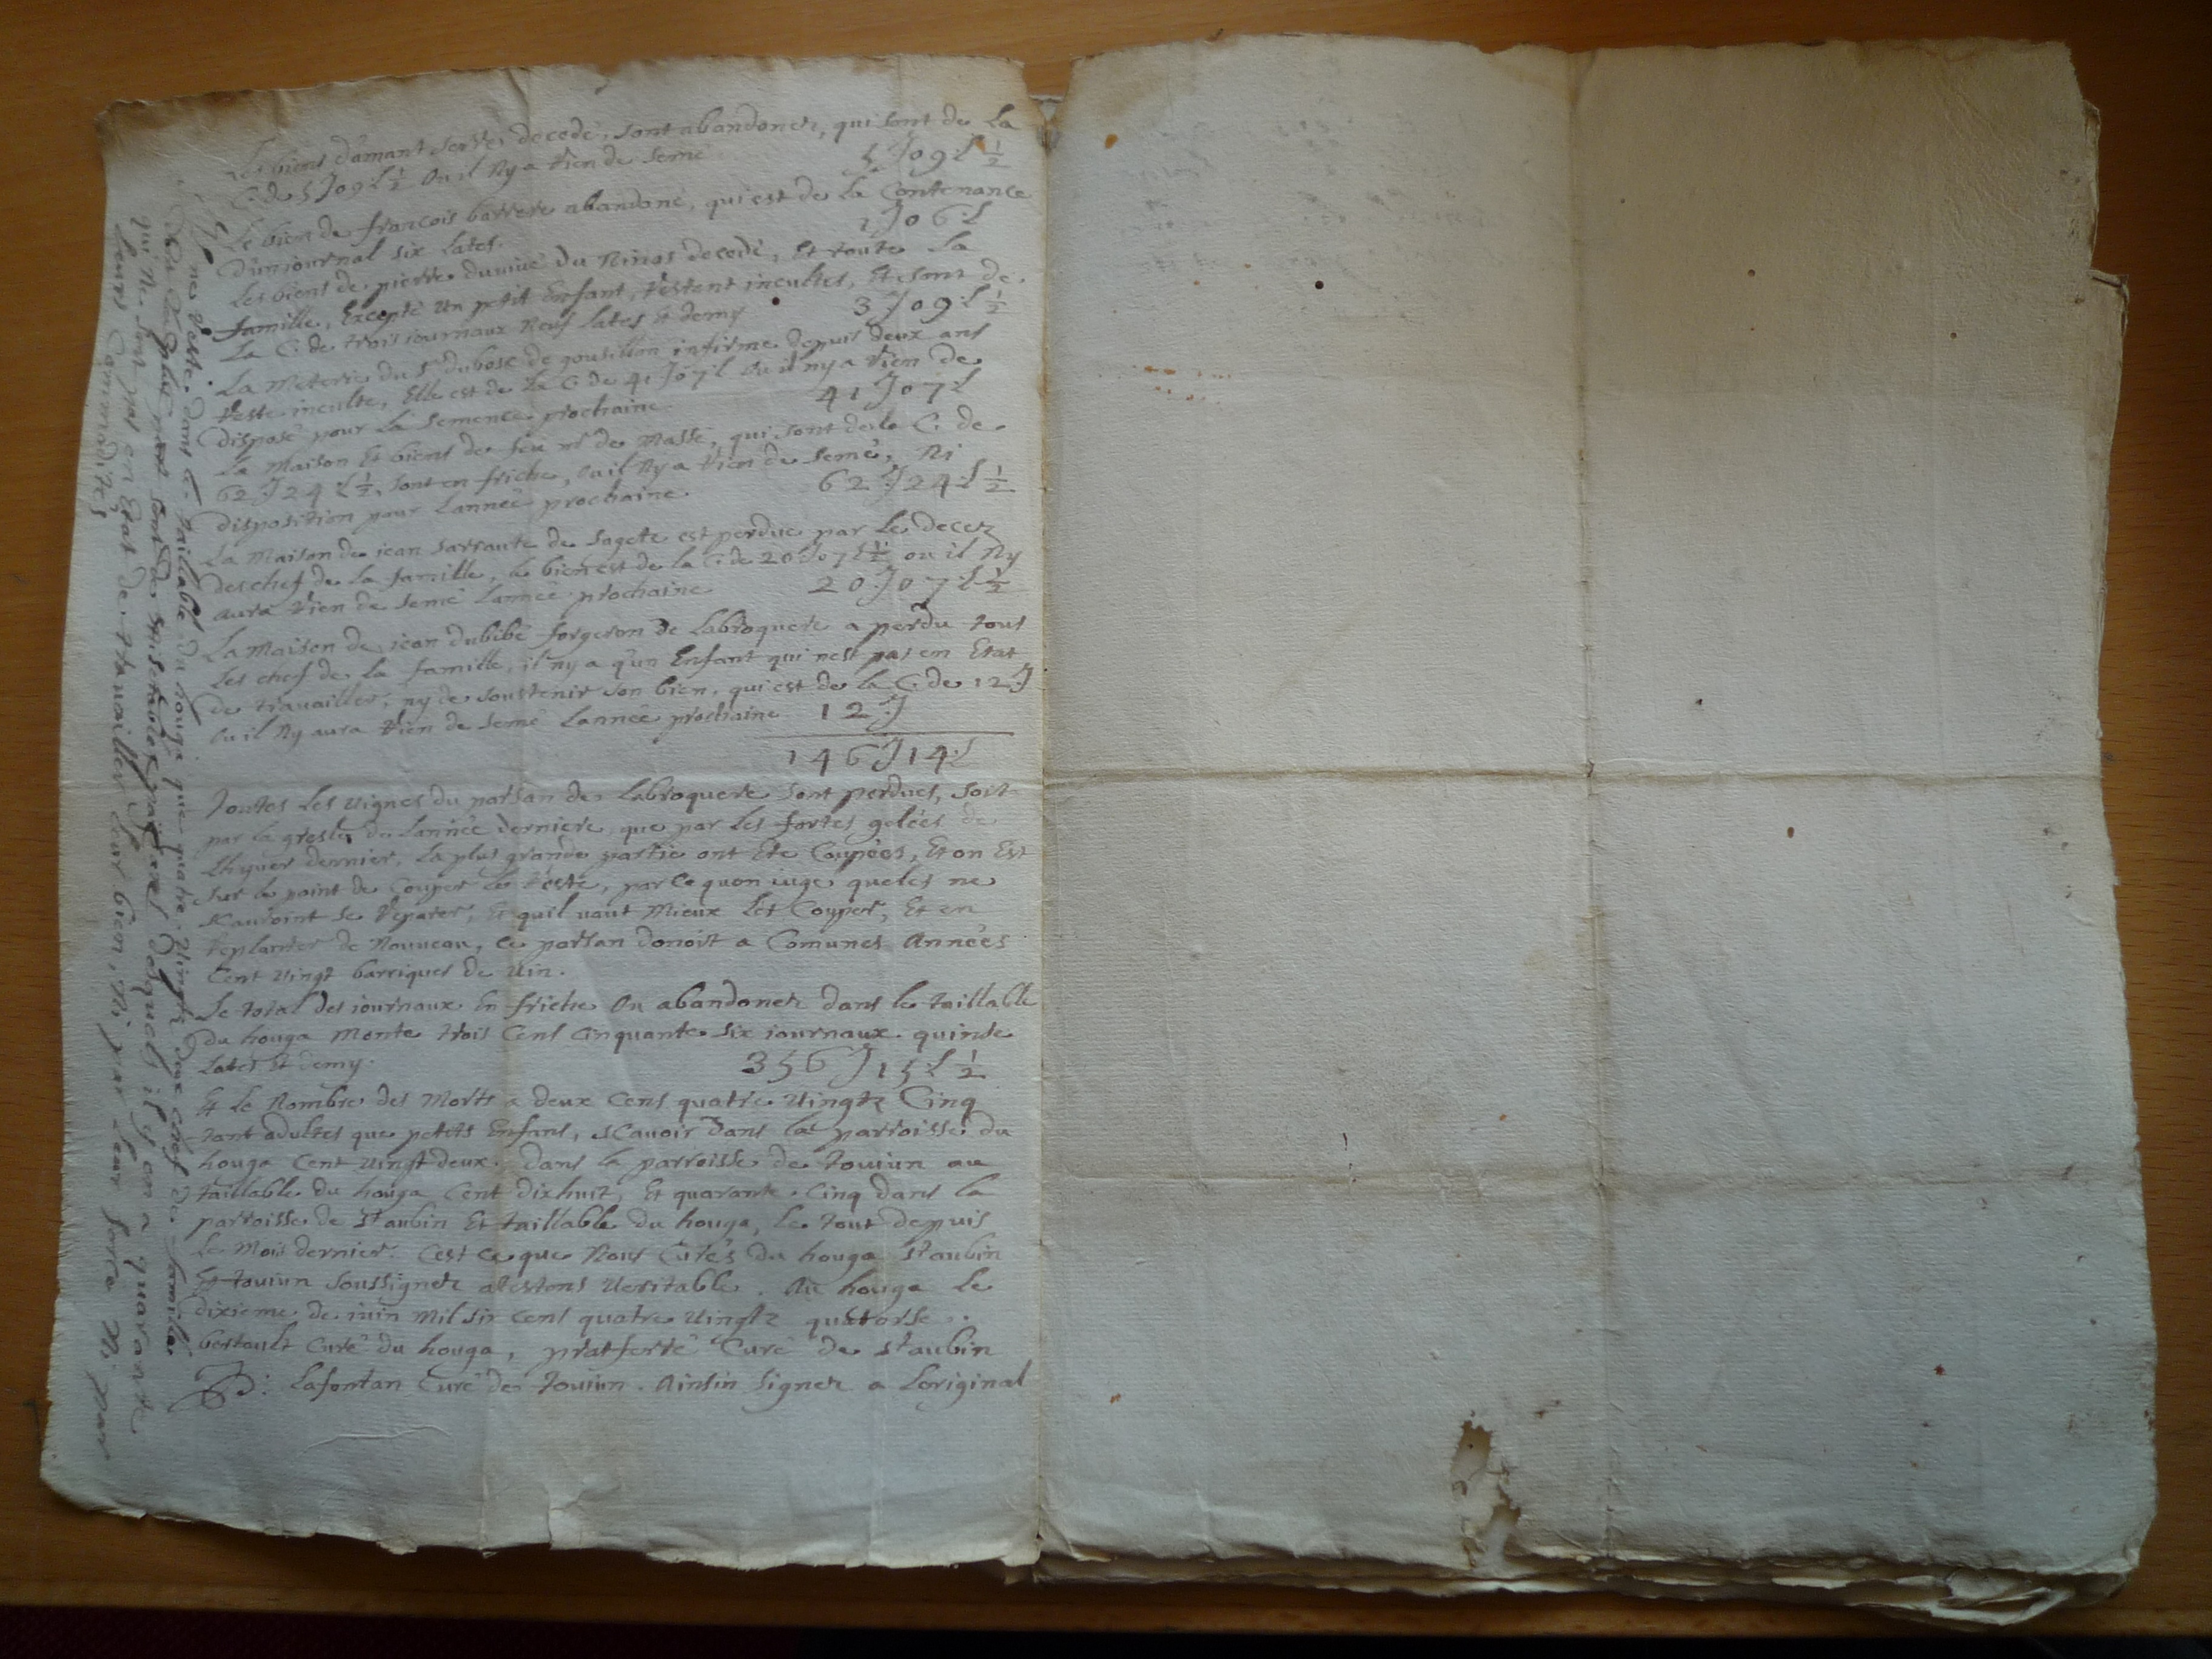 Les biens damant serres decedé, sont abandonez, qui sont de La
C. de 5 J 09 L ½ Ou il Ny a rien de semé 5 J 09 L ½
Le bien de francois barrere abandoné, qui est de la Contenance
D'un journal six Lates. 1 J 06 L
Les biens de pierre dumué du Ninos decedé, Et toute La
famille, Excepté Un petit Enfant, restent incultes, Et sont de
La C. de trois journaux Neuf Lates Et demy 3 J 09 L ½
La Meterie du Sr dubosc de gousillon infirme depuis deux ans
reste inculte, Elle est de La C. de 41 J 07 L Ou il ny a rien de
disposé pour La semence prochaine 41 J 07 L
La Maison Et biens de feu mr de Massé, qui sont de la C. de
62 J 24 L ½, sont en friche, Ou il Ny a rien de semé, Ni
disposition pour Lannée prochaine. 62 J 24 L ½
La Maison de jean sarraute de sagete est perdue par Le decez
des chef de la famille, le bien est de la C. de 20 J 07 L ½ ou il Ny
aura rien de semé Lannée prochaine 20 J 07 L ½
La Maison de jean dubibé forgeron de Labroquere a perdu tous
Les chef de la famille, il ny a q'un Enfant qui nest pas en Etat
de trauailler, ny de soustenir son bien, qui est de la C. de 12 J
Ou il Ny aura rien de semé Lannée prochaine 12 J
146 J 14 L
Toutes Les vignes du parsan de Labroquere sont perdues, soit
par la gresle de Lannée derniere, que par Les fortes gelées de
Lhyuer dernier, La plus grande partie ont Eté Coupées, Et on Est
sur le point de Couper Le reste, par Ce quon iuge queles ne
scauroint se reparer, Et quil uaut Mieux Les Couper, Et en
replanter de Nouueau, Ce parsan donoit a Comunes Années
Cent vingt barriques de vin.
Le total des journaux En friche Ou abandonez dans le taillable
du houga Monte trois Cens Cinquante six journaux quinse
Lates Et demy. 356 J 15 L ½
Et Le Nombre des Morts a deux Cens quatre Vingtz Cinq
tant adultes que petits Enfans, scauoir dans la parroisse du
houga Cent vingt deux, dans la parroisse de Toujun au
taillable du houga Cent dixhuit, Et quarante Cinq dans la
parroisse de St aubin Et taillable du houga, Le tout depuis
Le Mois dernier. C'est Ce que Nous Curés du houga St aubin
Et toujun soussignez atestons Ueritable. Au houga Le
dixieme de juin Mil six cens quatre Vingtz quatorse..
bertault Curé du houga, pratferré Curé de St aubin
Lafontan Curé de Toujun. Ainsin signez a Loriginal
ne reste dans le taillable du houga que quatre Vingts dix chef de famille
dont la plus part sont de miserables desquels il y en a quarante
qui Ne sont pas en Etat de trauailler Leur bien, Ni par leur force Ni par
leurs Commodités